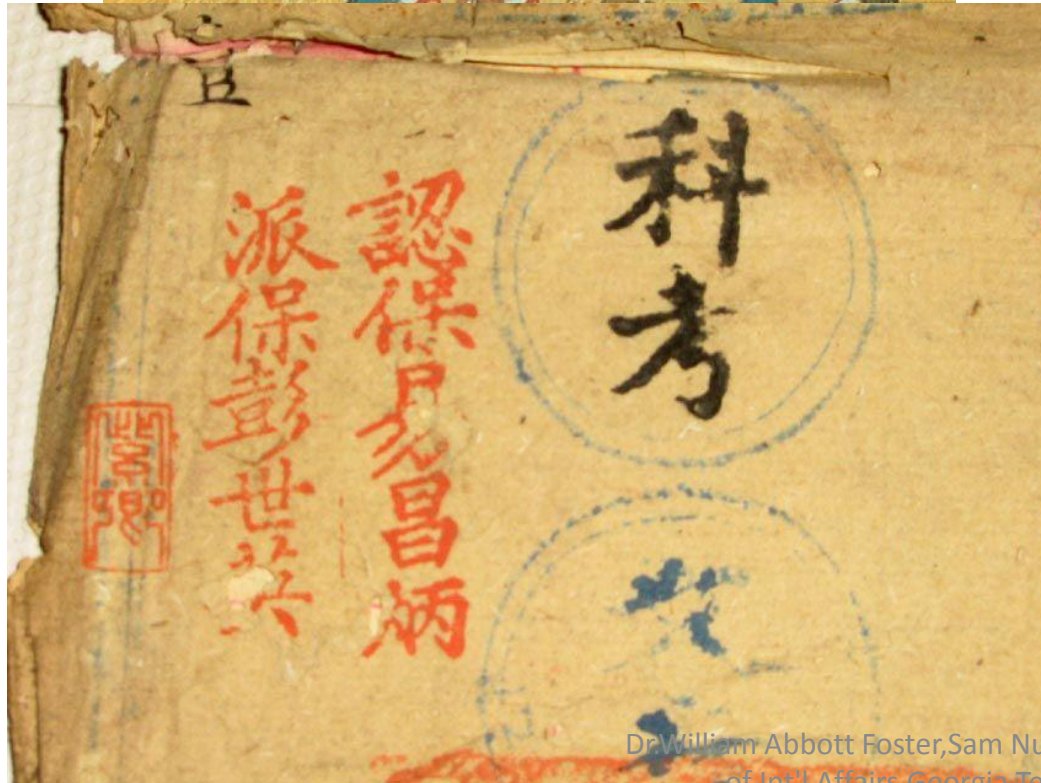 科考
認保易昌炳
派保彭世
紫卿
Dr.William Abbott Foster,Sam Nu
of Int'l Affairs,Georgia Te